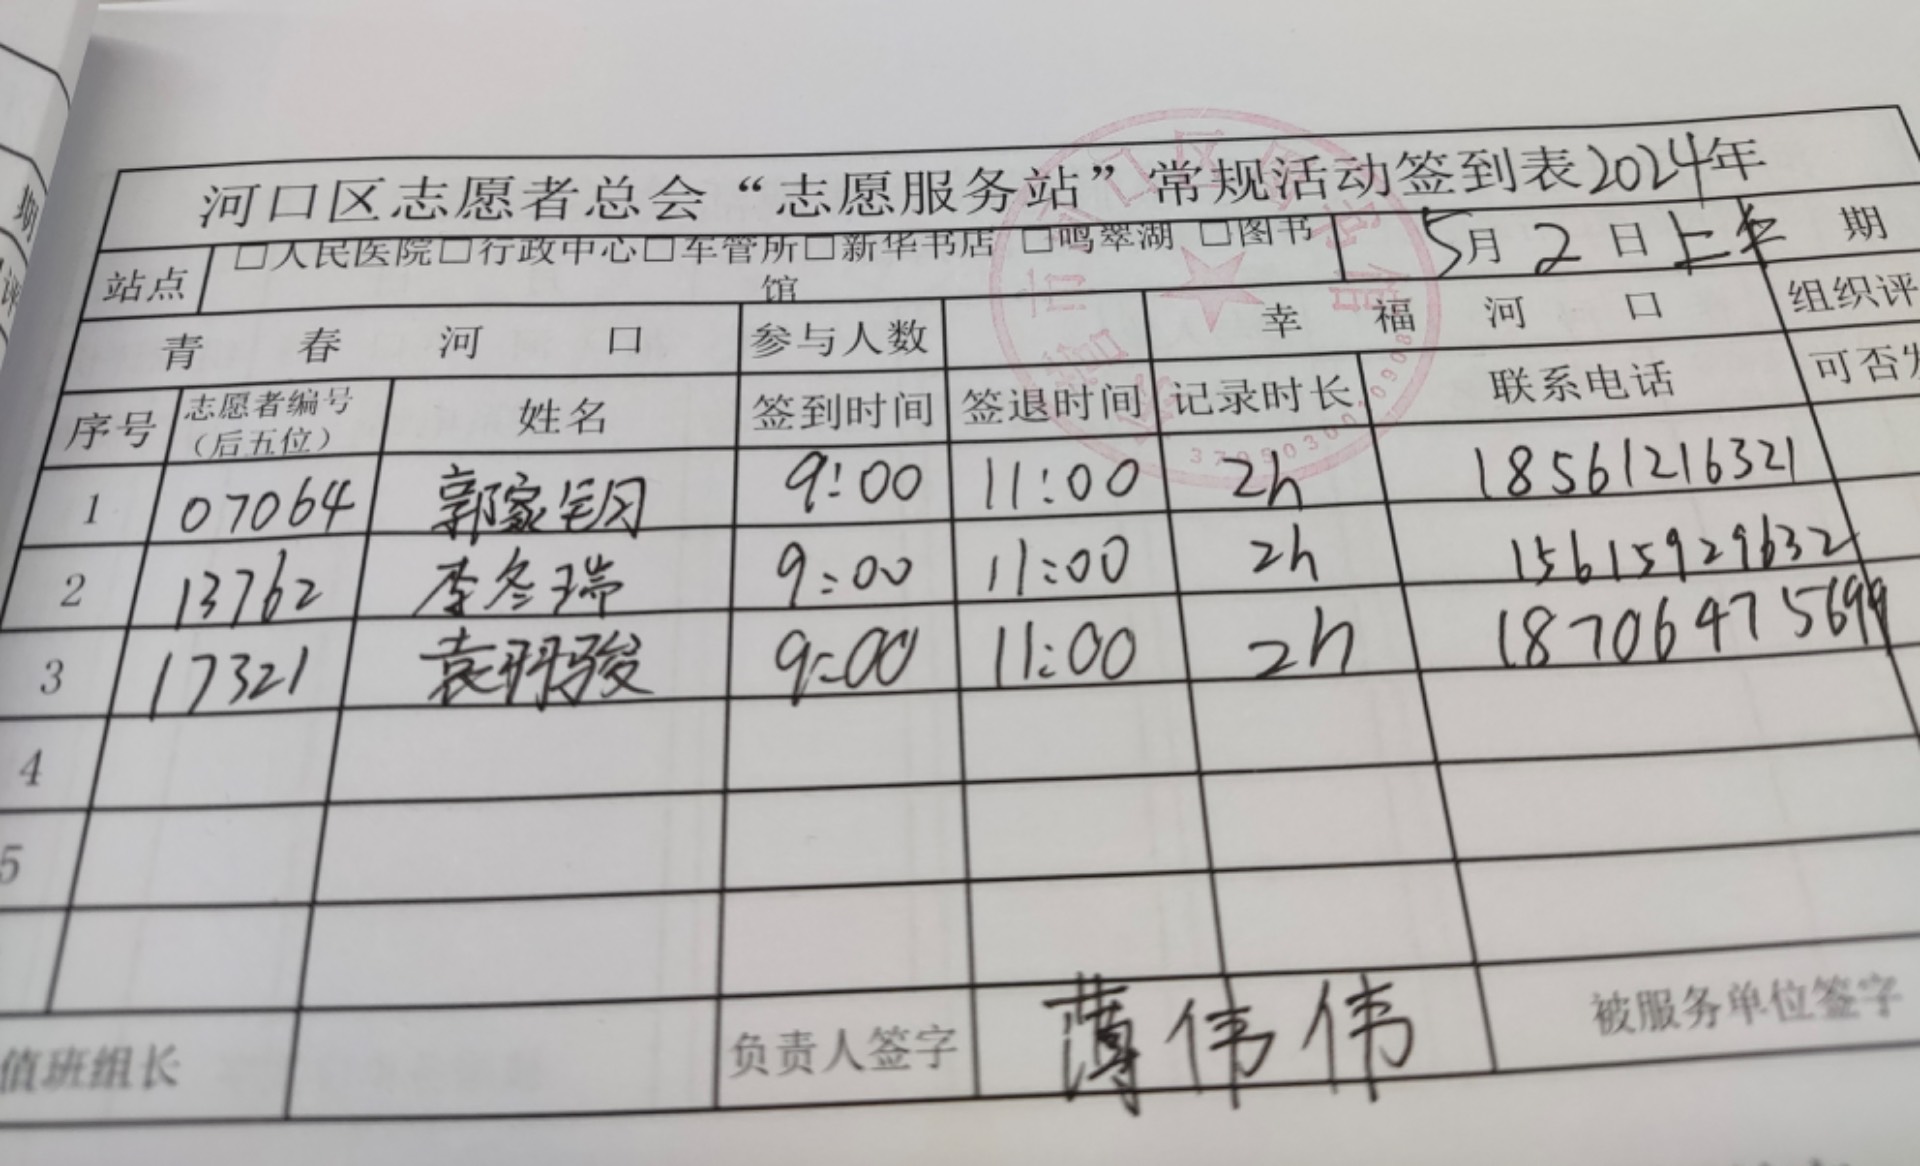 河口区志愿者总会“志愿服务站”常规活动签到表2024年
站点 □人民医院□行政中心□车管所□新华书店 □鸣翠湖 □图书馆 5月2日上午 期
青春河口 参与人数 幸福河口 组织评
序号 志愿者编号（后五位） 姓名 签到时间 签退时间 记录时长 联系电话 可否发
1 07064 郭家钥 9:00 11:00 2h 18561216321
2 13762 李冬瑞 9:00 11:00 2h 15615929632
3 17321 袁骏 9:00 11:00 2h 18706475699
4
5
值班组长 负责人签字 薄伟伟 被服务单位签字